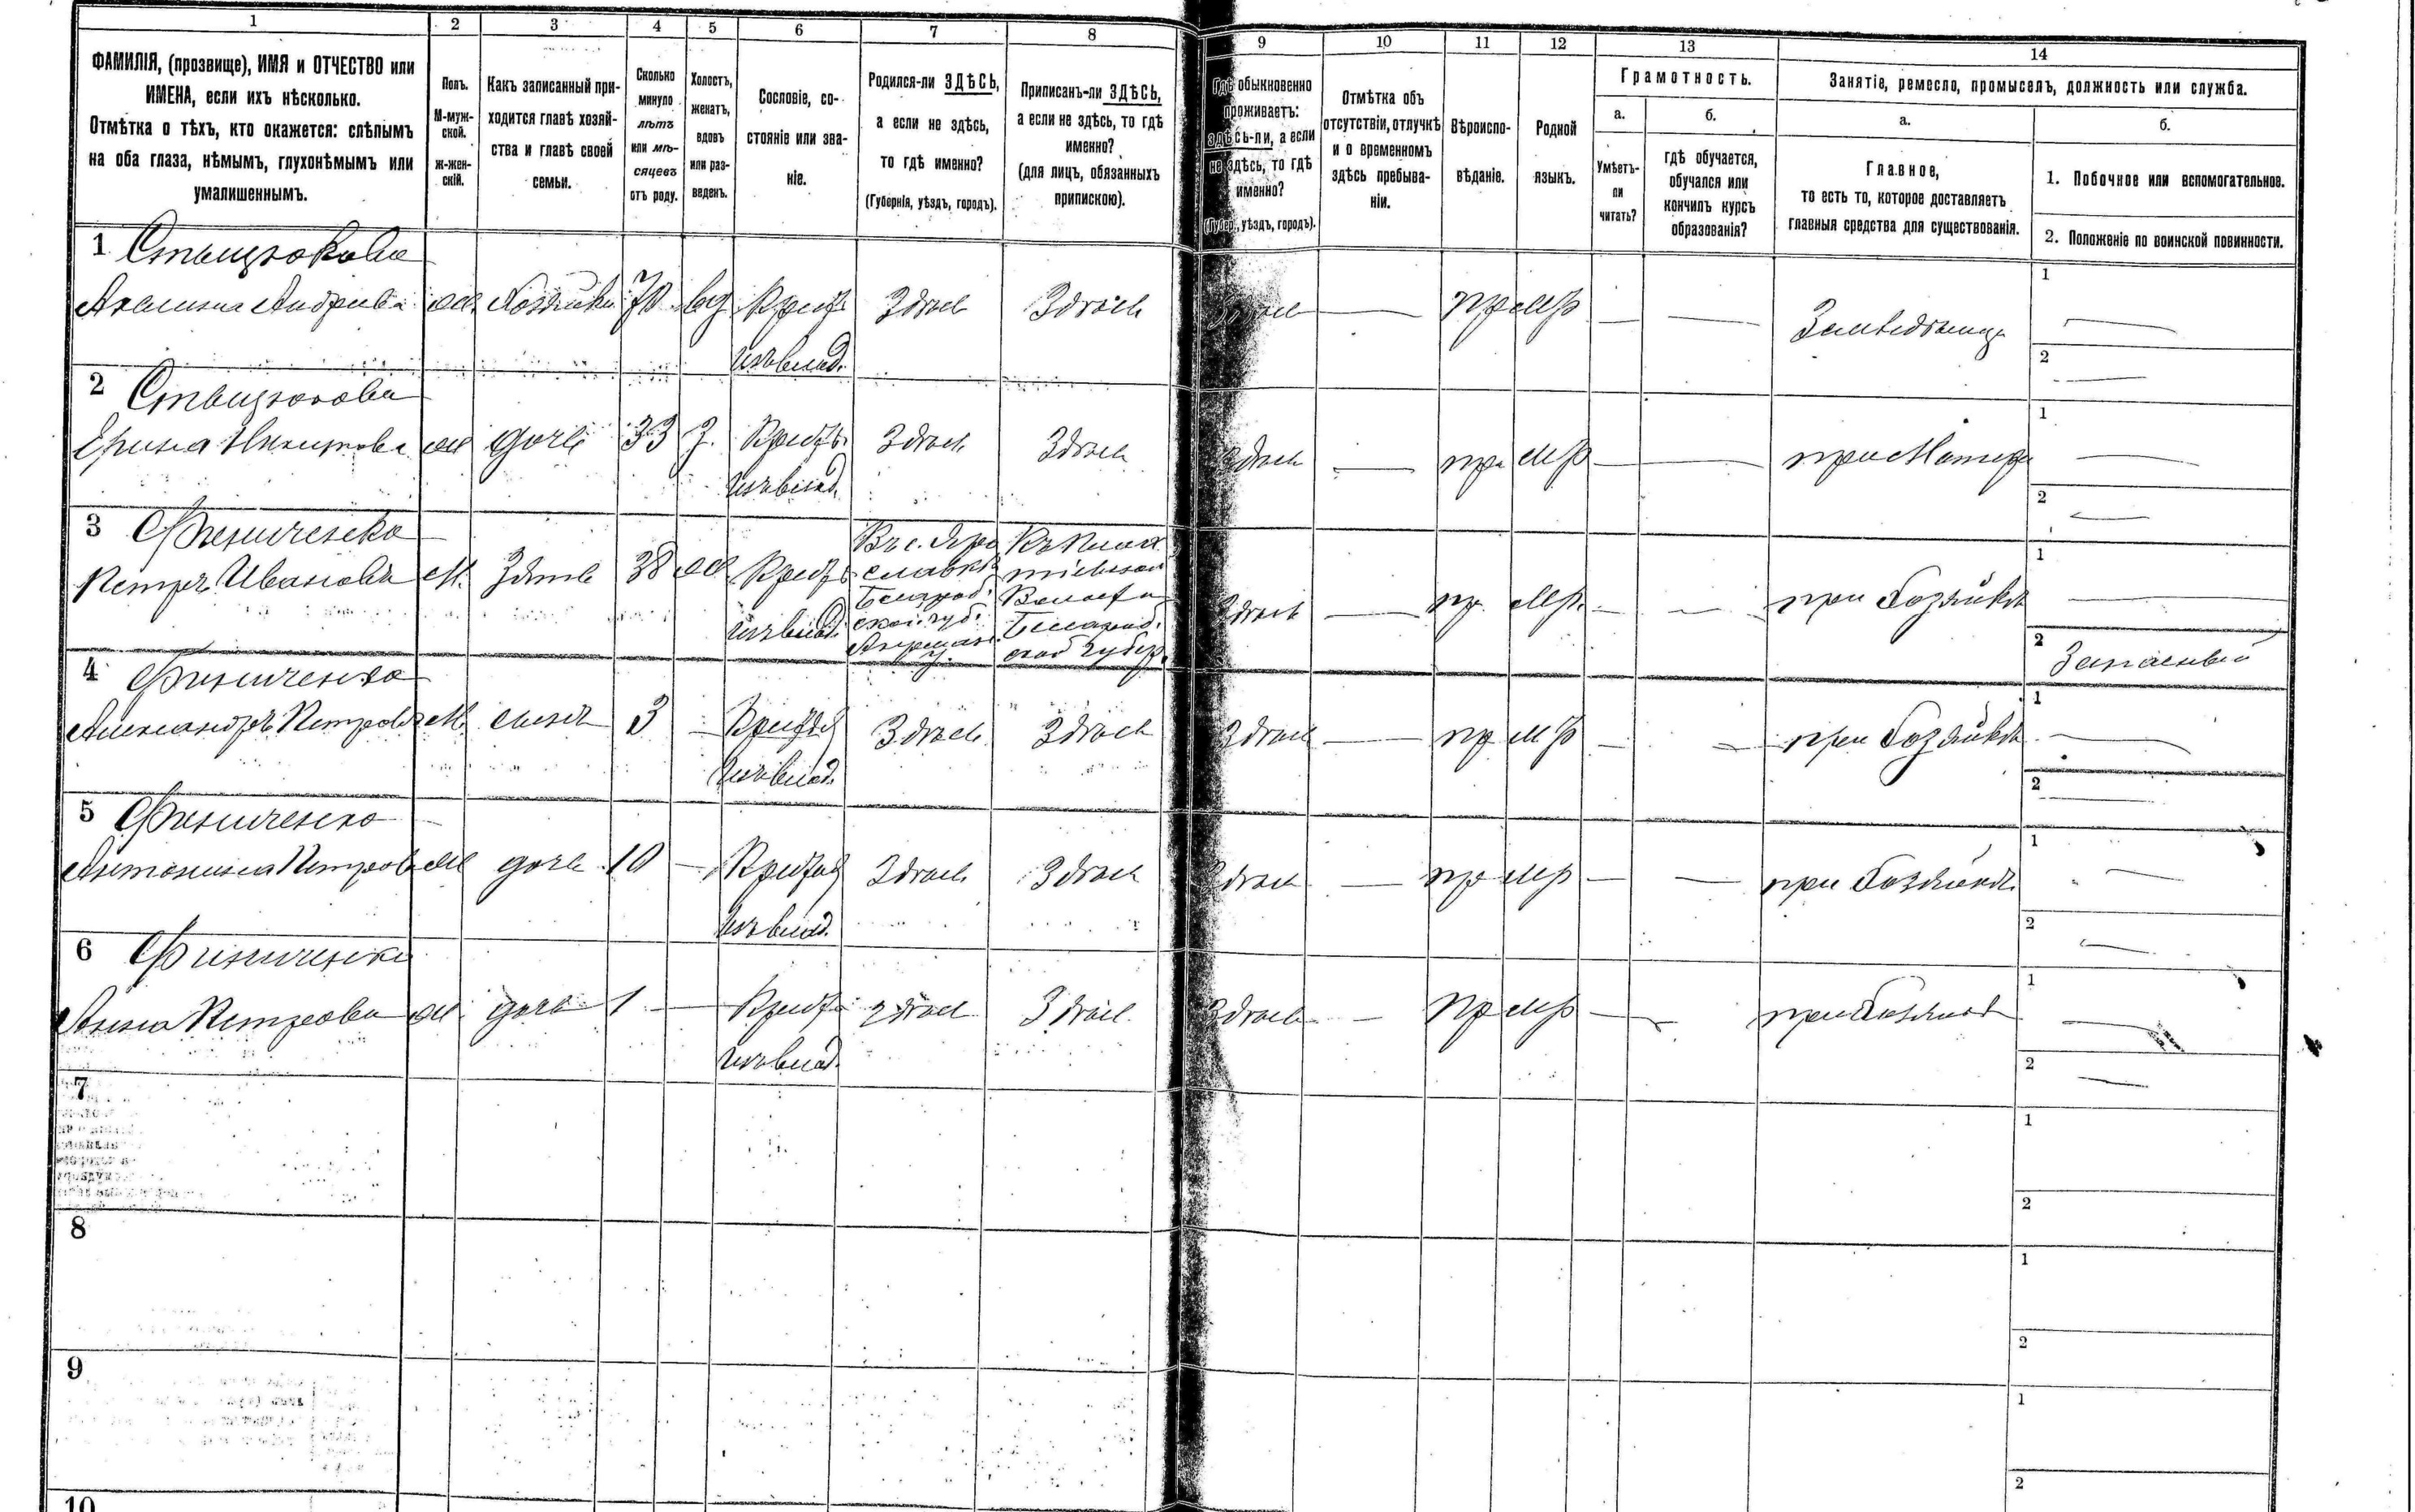 1 2 3 4 5 6 7 8 9 10 11 12 13 14
ФАМИЛІЯ, (прозвище), ИМЯ и ОТЧЕСТВО или
ИМЕНА, если ихъ нѣсколько.
Отмѣтка о тѣхъ, кто окажется: слѣпымъ
на оба глаза, нѣмымъ, глухонѣмымъ или
умалишеннымъ.
Полъ.
М-муж-
ской.
ж-жен-
скій.
Какъ записанный при-
ходится главѣ хозяй-
ства и главѣ своей
семьи.
Сколько
минуло
лѣтъ
или мѣ-
сяцевъ
отъ роду.
Холостъ,
женатъ,
вдовъ
или раз-
веденъ.
Сословіе, со-
стояніе или зва-
ніе.
Родился-ли ЗДѢСЬ,
а если не здѣсь,
то гдѣ именно?
(Губернія, уѣздъ, городъ).
Приписанъ-ли ЗДѢСЬ,
а если не здѣсь, то гдѣ
именно?
(для лицъ, обязанныхъ
припискою).
Гдѣ обыкновенно
проживаетъ:
здѣсь-ли, а если
не здѣсь, то гдѣ
именно?
(Губер., уѣздъ, городъ).
Отмѣтка объ
отсутствіи, отлучкѣ
и о временномъ
здѣсь пребыва-
ніи.
Вѣроиспо-
вѣданіе.
Родной
языкъ.
Грамотность.
а.
Умѣетъ-
ли
читать?
б.
гдѣ обучается,
обучался или
кончилъ курсъ
образованія?
Занятіе, ремесло, промыселъ, должность или служба.
а.
Главное,
то есть то, которое доставляетъ
главныя средства для существованія.
б.
1. Побочное или вспомогательное.
2. Положеніе по воинской повинности.
1
Андрѣева ж. Хозяйка 70 вд Крест Здѣсь Здѣсь Здѣсь — пр мр — — 1 —
изъ влад. 2 —
2
Ирина Никитова ж дочь 33 З. Крестъ Здѣсь Здѣсь Здѣсь — пр мр — — при Матери 1 —
изъ влад. 2 —
3 Финиченко
Петръ Ивановъ М. Зять 38 ж Крестъ Здѣсь — пр мр. — — при Хозяйкѣ 1 —
изъ влад. губ. губер. 2 Запасный
4 Финиченко
Александръ Петровъ М. сынъ 3 — Крест Здѣсь Здѣсь Здѣсь — пр мр — — при Хозяйкѣ 1 —
изъ влад. 2 —
5 Финиченко
Антонина Петров ж дочь 10 — Крест Здѣсь Здѣсь Здѣсь — пр мр — — при Хозяйкѣ 1 —
изъ влад. 2 —
6 Финиченко
Анна Петрова ж дочь 1 — Крест здѣсь Здѣсь Здѣсь — пр мр — — при Хозяйкѣ 1 —
изъ влад. 2 —
7 1
2
8 1
2
9 1
2
10